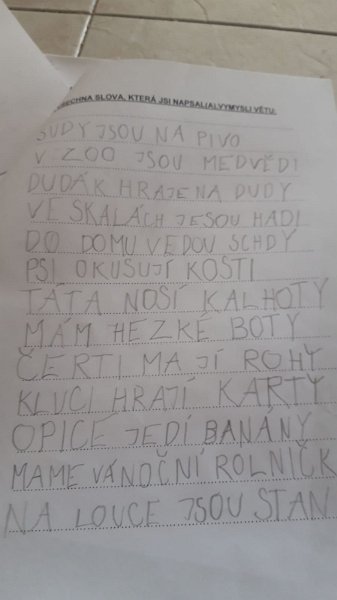 VŠECHNA SLOVA, KTERÁ JSI NAPSAL(A)VYMYSLI VĚTU.
SUDY JSOU NA PIVO
V ZOO JSOU MEDVĚDI
DUDÁK HRAJE NA DUDY
VE SKALÁCH JESOU HADI
DO DOMU VEDOU SCHDY
PSI OKUSUJÍ KOSTI
TÁTA NOSÍ KALHOTY
MÁM HEZKÉ BOTY
ČERTI MA JÍ ROHY
KLUCI HRAJÍ KARTY
OPICE JEDÍ BANÁNY
MAME VÁNOČNÍ ROLNIČK
NA LOUCE JSOU STAN